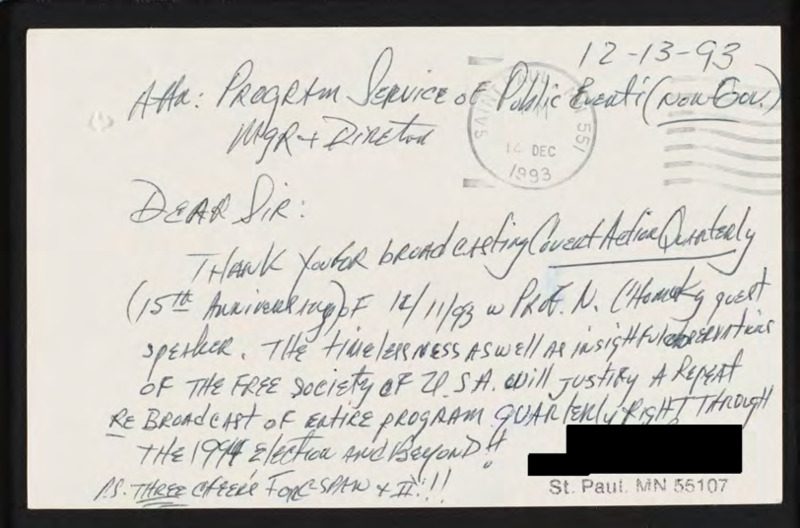 12-13-93
Attn: PROGRAM SERVICE OF Public Events (NON GOV.)
MgR & DiRector
SAINT PAUL MN 551
14 DEC
1993
DEAR SIR:
THANK YOU FOR broadcasting Covert Action Quarterly
(15TH Anniversary) OF 12/11/93 w PROF. N. CHomsky guest
speaker. THE timelessness AS well AS insightful observations
OF THE FREE SOCIETY OF U.S.A. will justify A Repeat
RE BROADCAST OF entire program QUARTERLY RIGHT THROUGH
THE 1994 Election AND BEYOND!!
P.S. THREE CHEERS FOR C-SPAN & II!!!
St. Paul, MN 55107